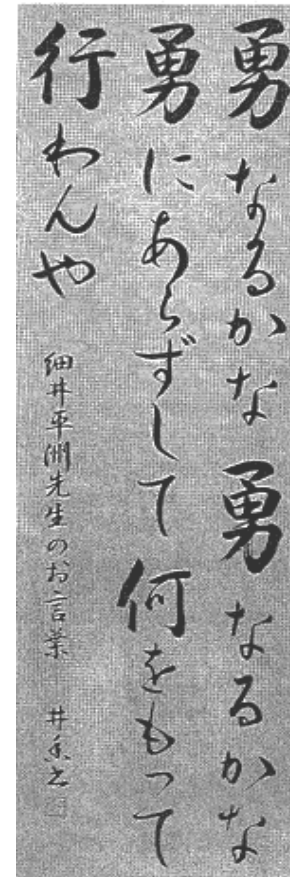 勇なるかな勇なるかな
勇にあらずして何をもって
行わんや
細井平洲先生のお言葉